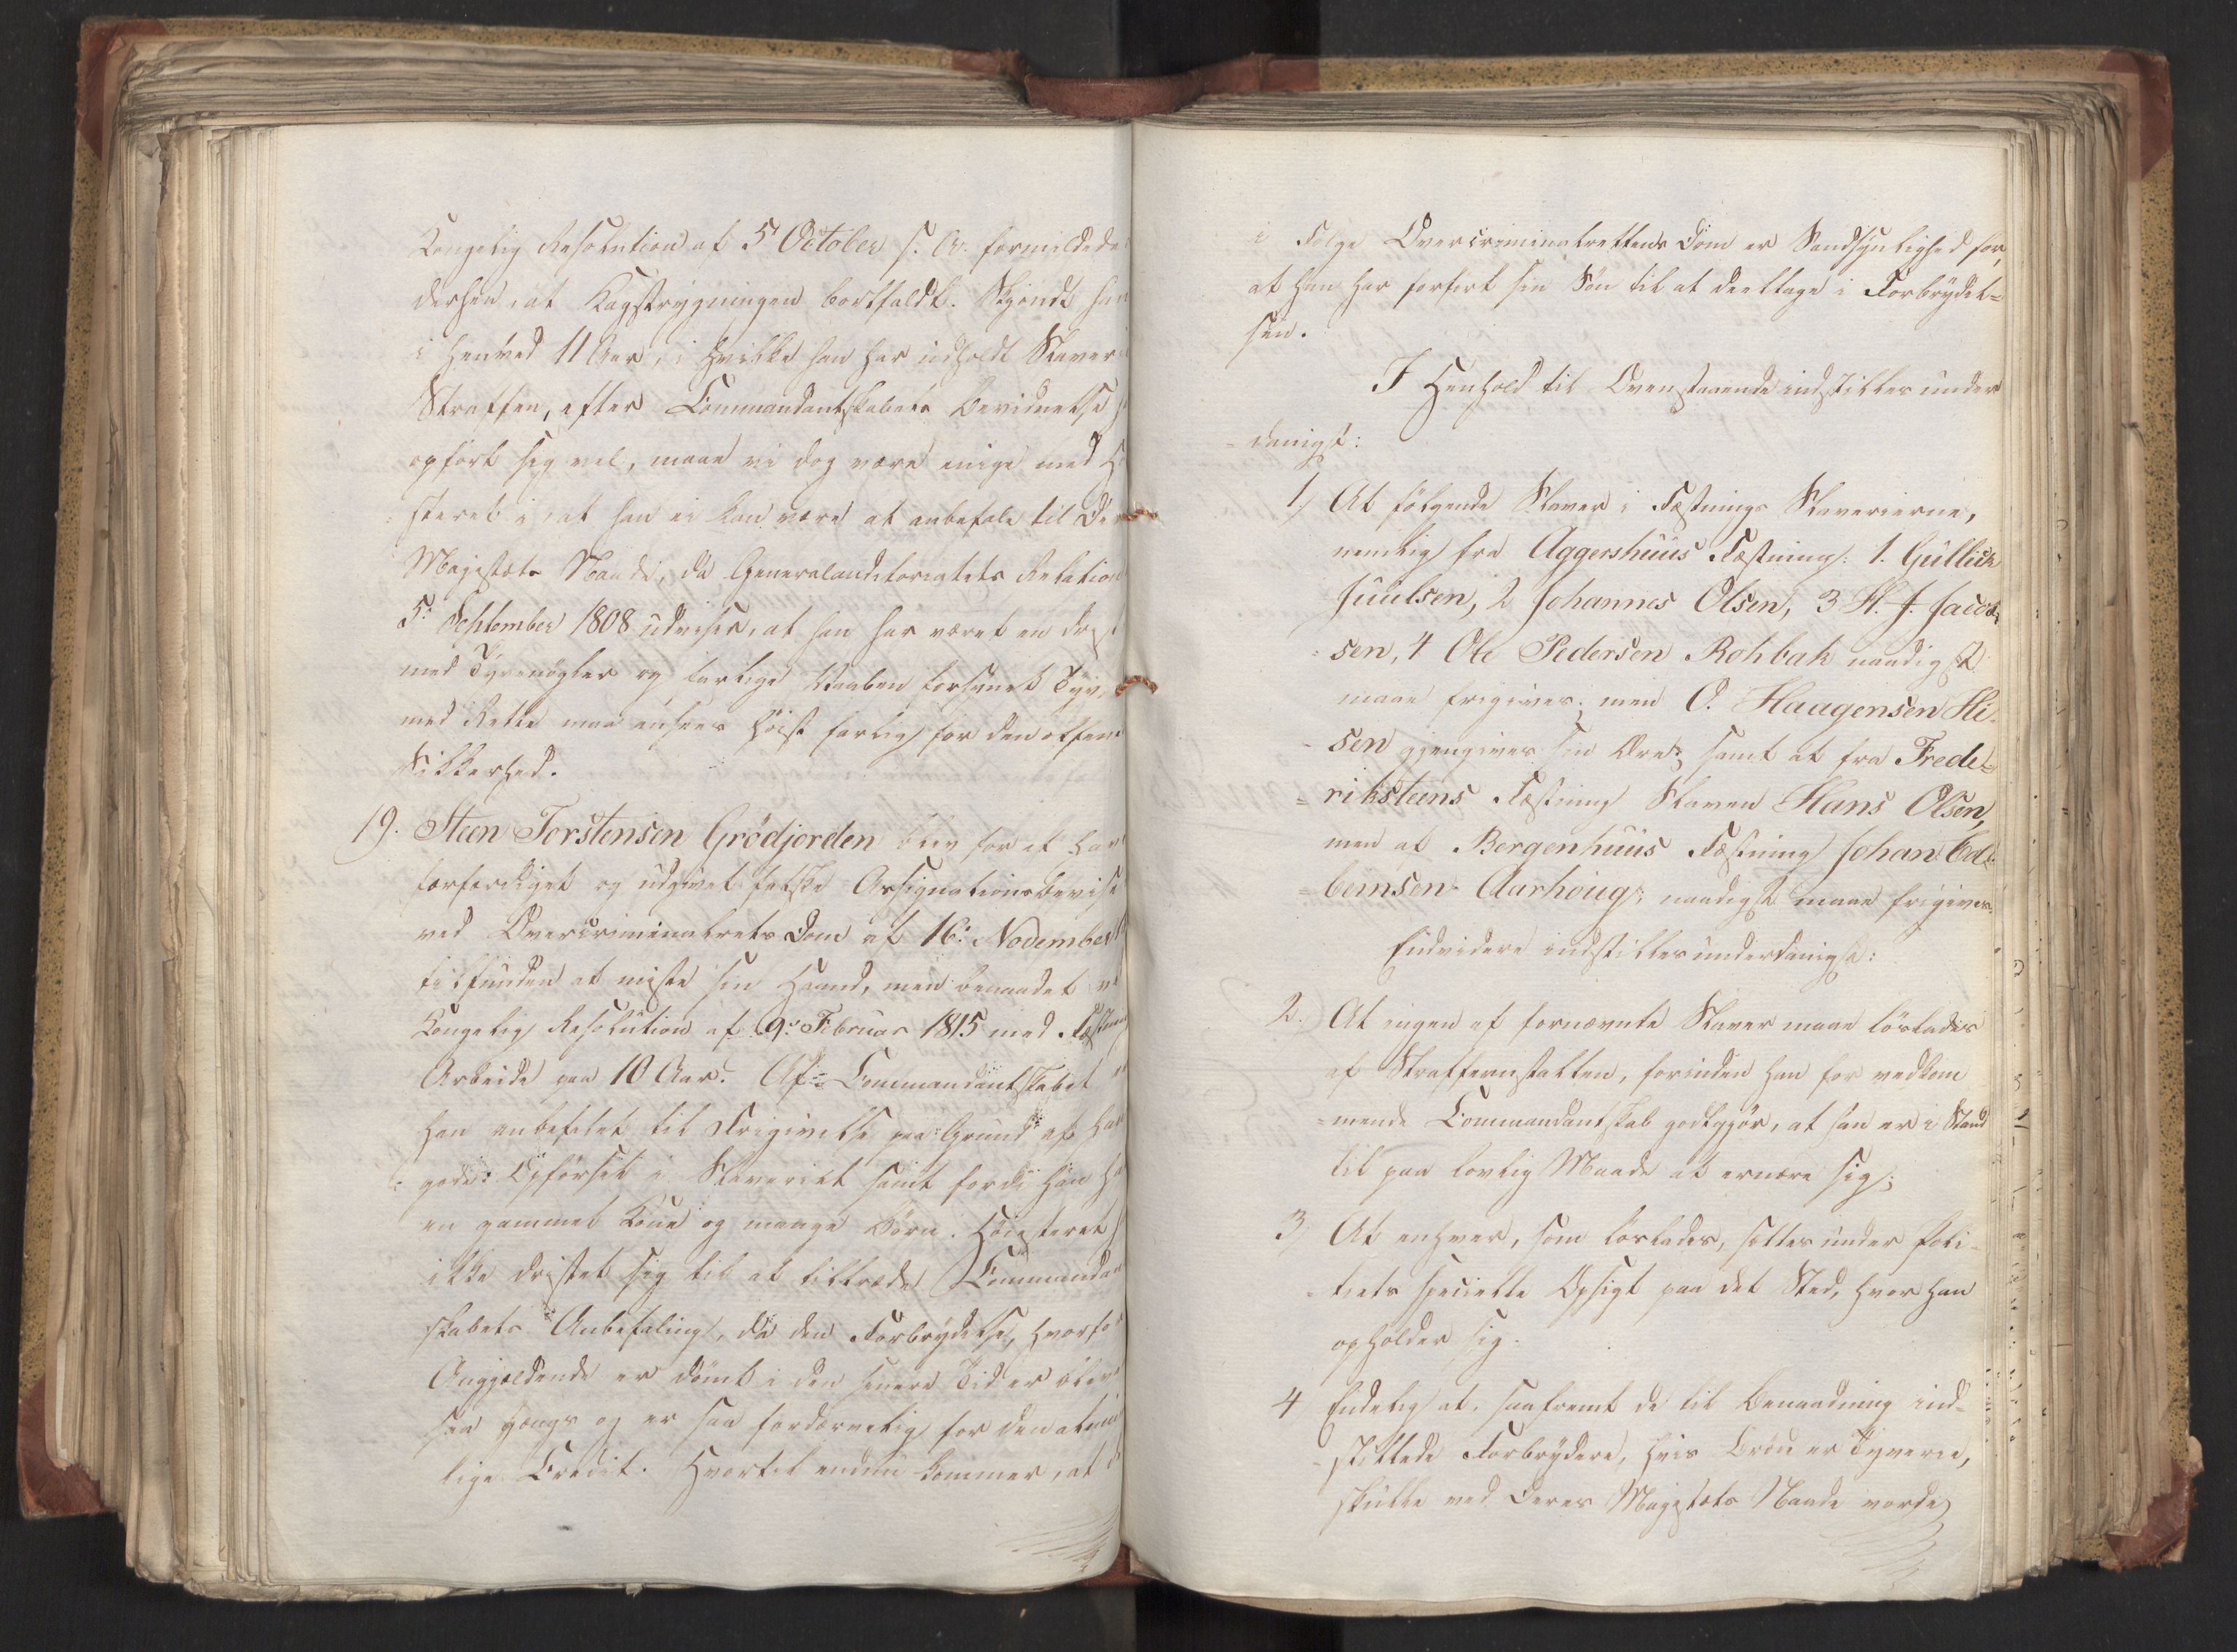 Kongelig Resolution af 5 October s. A. formildede
derhen, at Kagstrygningen bortfaldt. Skjøndt han
i henved 11 Aar, i hvilke han har udholdt Slaveri
Straffen, efter Commandantskabets Bevidnelse
opført sig vel, maae vi dog være enige med H
steret i, at han ei kan være at anbefale til De
Majestæts Naade, da Generalauditoriatets Relation
5: Sehtember 1808 udviser, at han har været en
med Tyvenøgler og farlige Vaaben forsynet Tyv,
med Rette maa ansees høist farlig for den offent
Sikkerhed.
19. Steen Torstensen Grødjorden blev for at have
forfærdiget og udgivet falske Assignationsbevise
ved Overcriminalrets Dom af 16: November
tilfunden at miste sin Haand, men benaadet ve
Kongelig Resolution af 9: Februar 1815 med Fæstnings
Arbeide paa 10 Aar. Af Commandantskabet er
han anbefalet til Frigivelse paa Grund af hans
gode Opførsel i Slaveriet samt fordi han ha
en gammel Kone og mange Børn. Høiesteret h
ikke dristet sig til at tiltræde Commandant
skabets Anbefaling, da den Forbrydelse, hvorfor
Angjældende er dømt i den senere Tid er blev
saa gængs og er saa fordærvelig for den almin
lige Credit. Hvortil endnu kommer, at d
i Følge Overcriminalrettens Dom er Sandsynlighed for,
at han har forført sin Søn til at deeltage i Forbrydel=
sen.
I Henhold til Ovenstaaende indstilles under
=danigst:
1) At følgende Slaver i Fæstnings Slaverierne,
nemlig fra Aggershuus Fæstning: 1. Gullich
Juulsen, 2 Johannes Olsen, 3 H. J. Jacob=
=sen, 4 Ole Pedersen Rohbak naadigst
maae frigives; men O. Haagensen Hi=
=sen gjengives sin Ære; samt at fra Frede=
=riksteens Fæstning Slaven Hans Olsen,
men af Bergenhuus Fæstning Johan Col=
=bernsen Aarhoug, naadigst maae frigives.
Endvidere indstilles underdanigst:
2. At ingen af fornævnte Slaver maae løslades
af Straffeanstalten, forinden han for vedkom
=mende Commandantskab godtgjør, at han er i Stand
til paa lovlig Maade at ernære sig;
3) At enhver, som løslades, sættes under Poli=
=tiets specielle Opsigt paa det Sted, hvor han
opholder sig.
4 Endelig at, saafremt de til Benaadning ind=
=stillede Forbrydere, hvis Brøde er Tyverie,
skulle ved Deres Majestæts Naade vorde